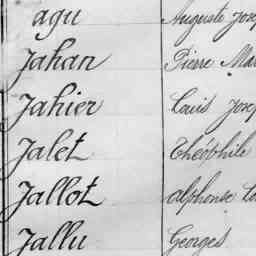 agu Auguste Josep
Jahan Pierre Mar
Jahier Louis Josep
Jalet Théophile
Jallot Alphonse Lo
Jallu Georges